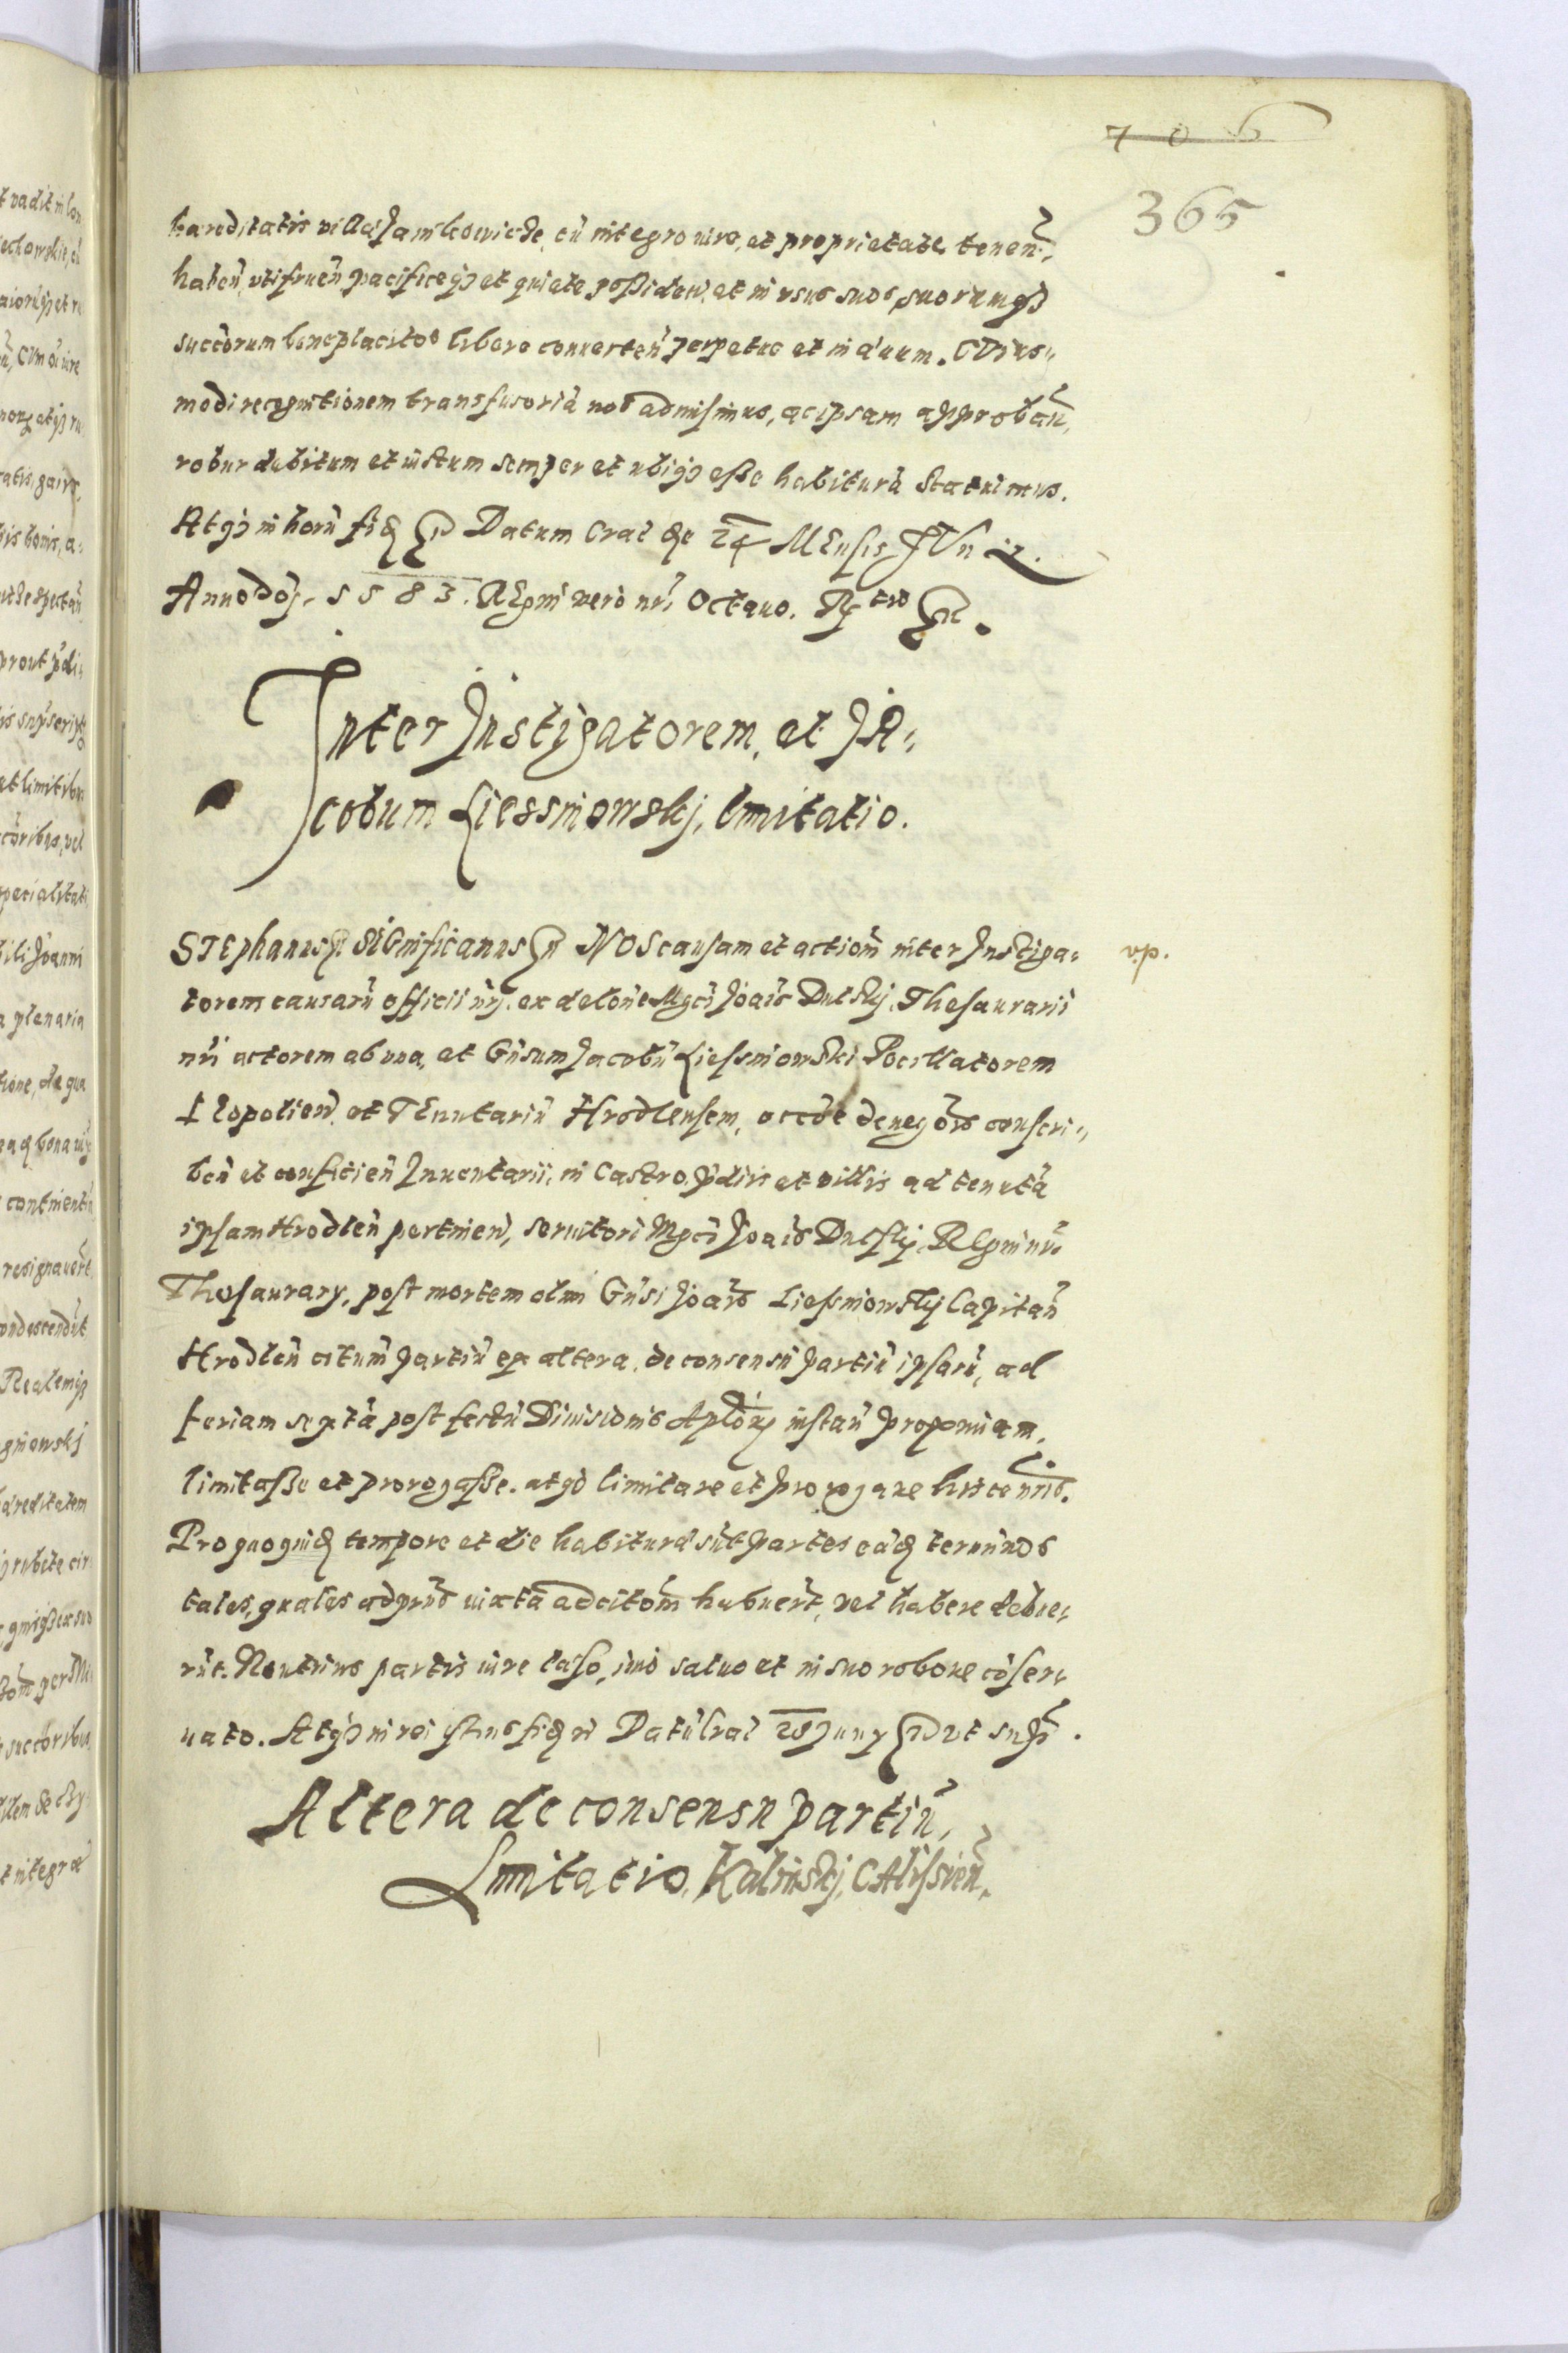 706
365
hæreditatis villæ Jamkowicze, cũ integro iure, et proprietate tenen̄,
haben̄, vtifruen̄ pacificeq̨ et quiete possiden̄, et in vsus suos suorumq̨
succorum beneplacitos libere conuerten̄ perpetuo et in æuum. CVius,,
modi recognitionem transfusoriã nos admisimus, ac ipsam approban̄,
robur debitum et iustum semper et ubiq̨ esse habiturã statuimus.
Atq̨ in horũ fid Datum Crac die 24 MEnsis JVnij.
Anno dōj. 1583. REgni vero nr̄i Octauo. Rctro
Inter Instigatorem, et JA,,
cobum Liessniowskj, limitatio.
STEphanus SIGnificamus NOS causam et actiom̄ inter Instiga,,
torem causarũ officii nr̄j. ex delōne Mgci Joāis Dulskj, Thesaurarii
nr̄i actorem ab vna, et Gn̄sum Jacobũ Liessniowski Pocillatorem
LEopolien̄. et TEnutariũ Hrodlensem, occōe de negōrō conscri,,
ben̄ et conficien̄ Inuentarii, in Castro, pdiis et villis ad tenutã
ipsam Hrodlen̄ pertinen̄, seruitori Mgci Joāis Dulskj, REgni nr̄i
Thesaurarÿ, post mortem olim Gn̄si Joāis Liessniowskij Capitan̄
Hrodlen̄ citum̄ partiũ ex altera, de consensu partiũ ipsarũ, ad
feriam sextã post festũ Diuisionis Aplōrx instan̄ proximam,
limitasse et prorogasse. atq̨ limitare et prorogare hisce nr̄is.
Pro quoquid tempore et die habituræ sũt partes eãd terminos
tales, quales ad pns̄ iuxta ad citom̄ habuerũt, vel habere debue,,
rũt. Neutrius partis iure læso, imo saluo et in suo robore cõser,,
uato. Atq̨ in rei istius fid Datũ Crac 28 Junij vt supr̄.
v.p.
Altera de consensu partiũ,
Limitatio, Kalinskj, CAlissien̄.